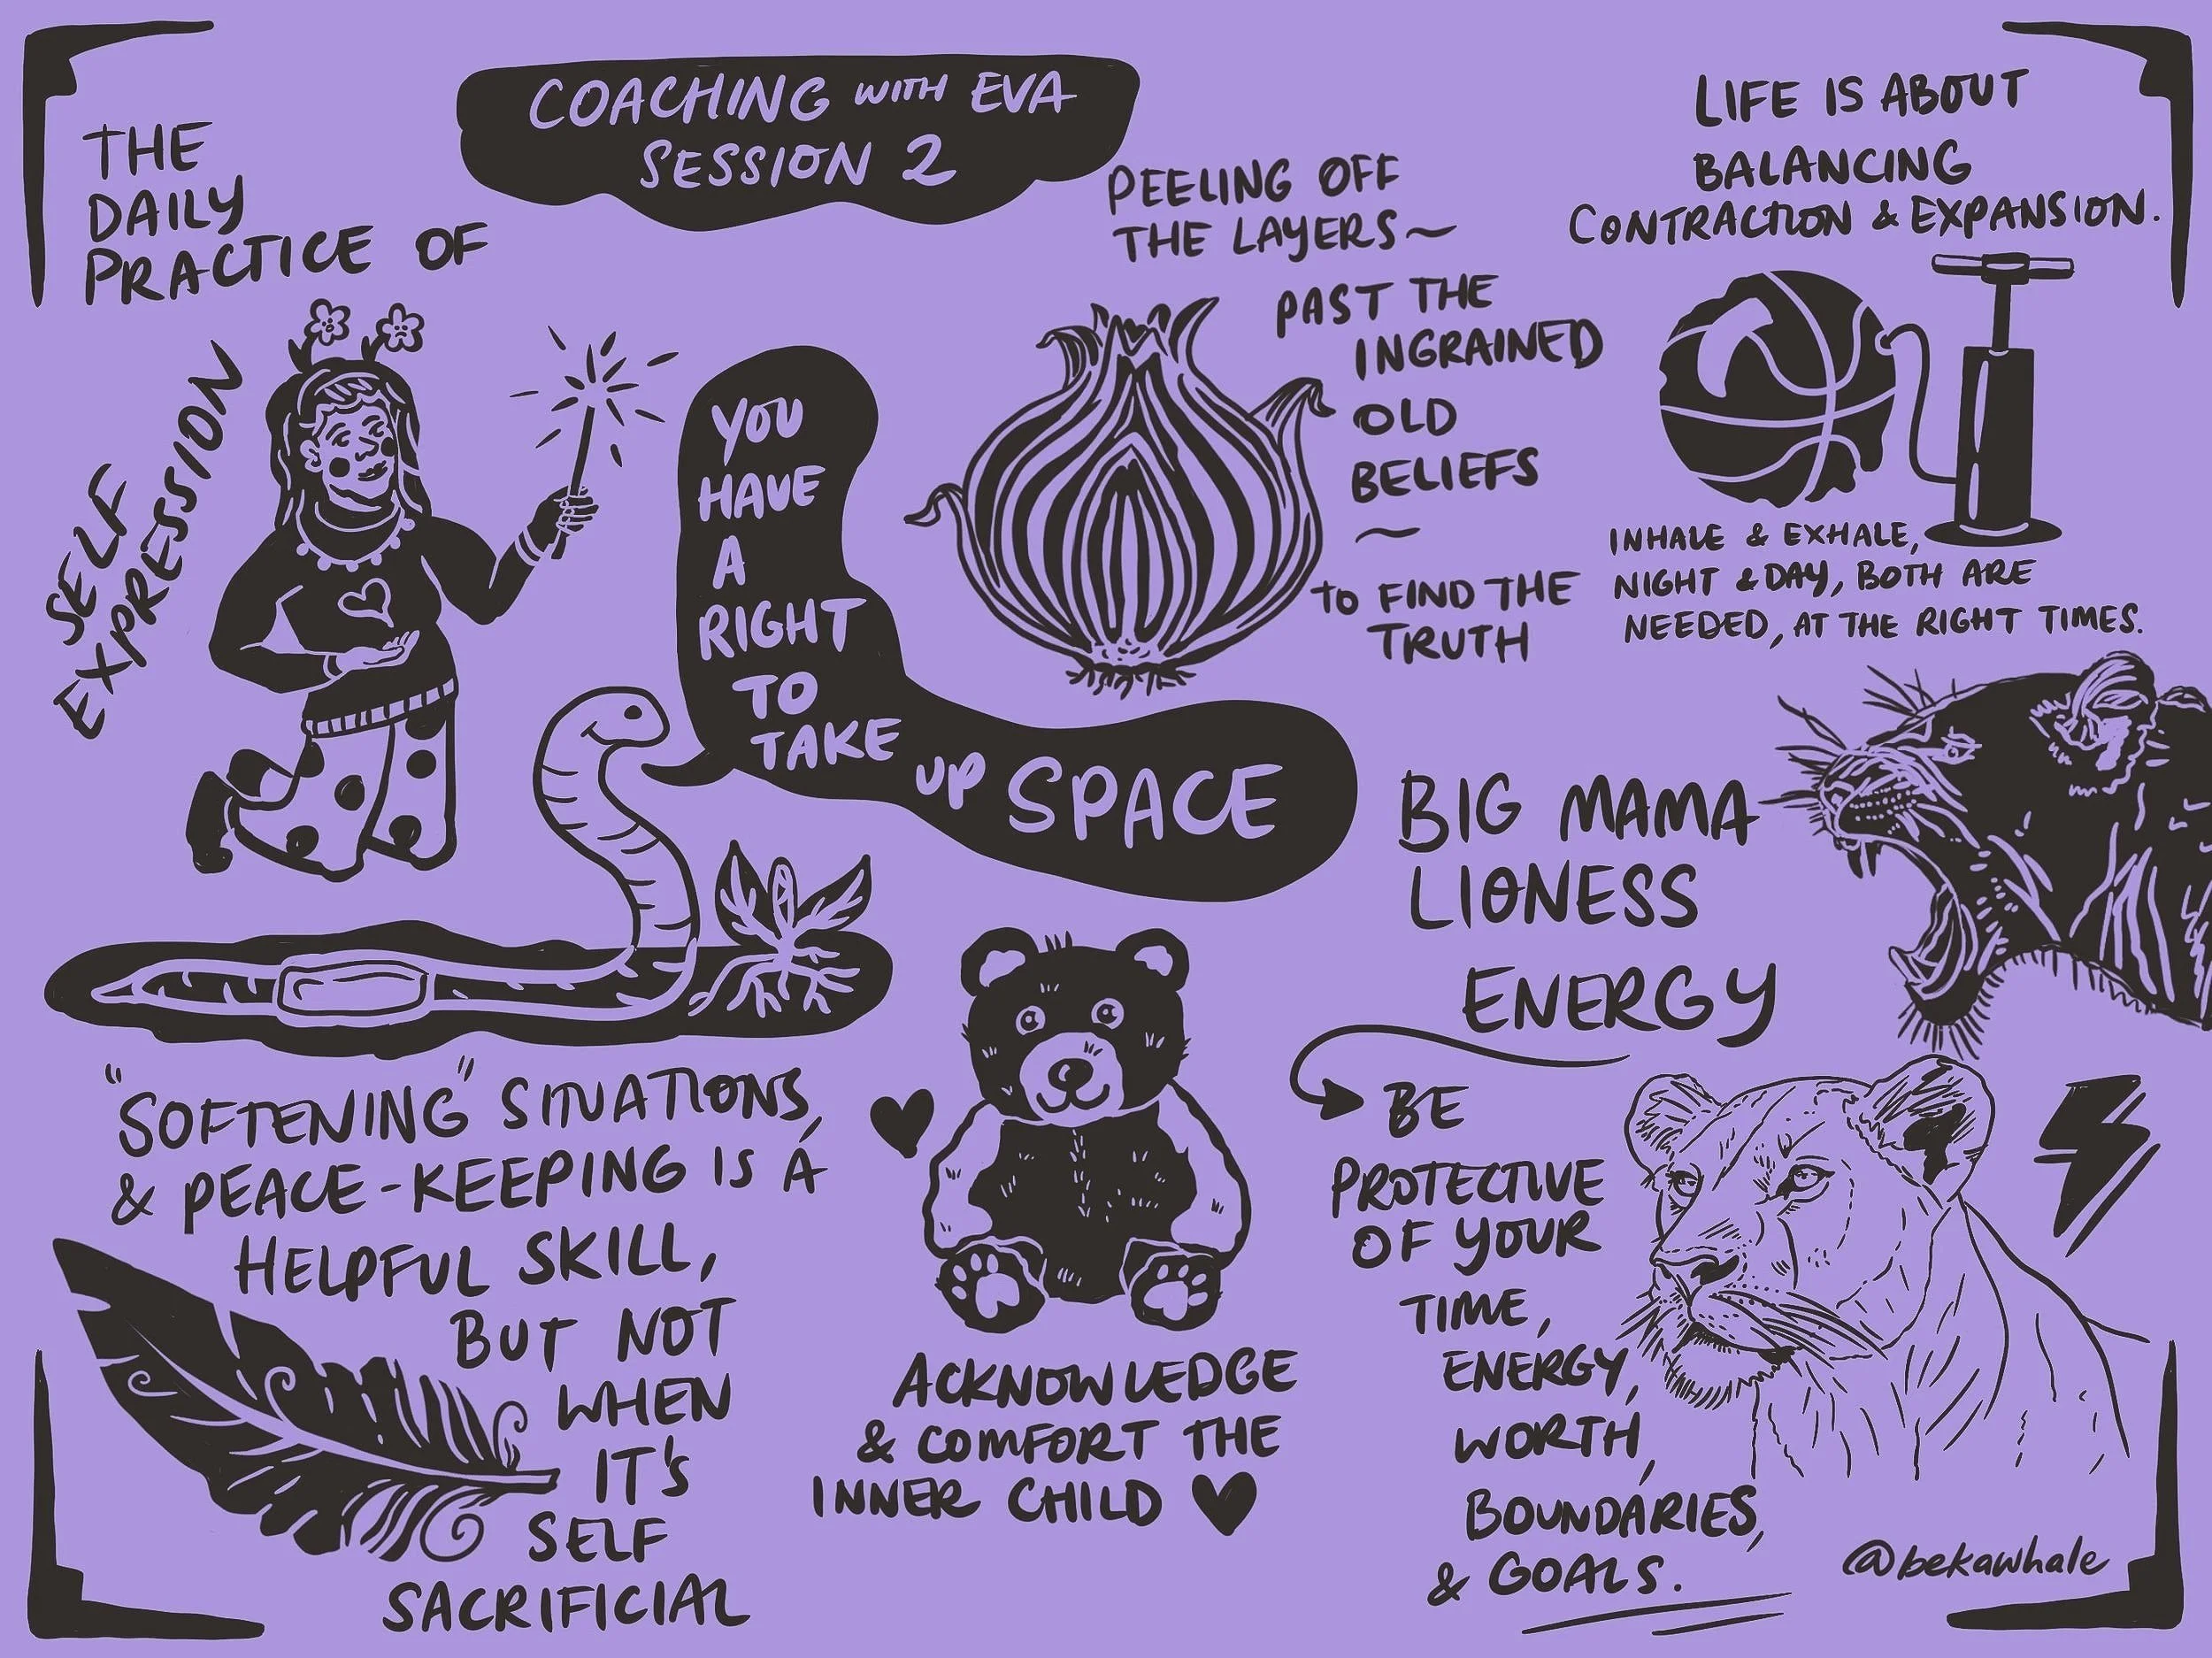 COACHING WITH EVA
SESSION 2
THE
DAILY
PRACTICE OF
SELF
EXPRESSION
YOU
HAVE
A
RIGHT
TO
TAKE
UP SPACE
PEELING OFF
THE LAYERS~
PAST THE
INGRAINED
OLD
BELIEFS
~
TO FIND THE
TRUTH
LIFE IS ABOUT
BALANCING
CONTRACTION & EXPANSION.
INHALE & EXHALE,
NIGHT & DAY, BOTH ARE
NEEDED, AT THE RIGHT TIMES.
BIG MAMA
LIONESS
ENERGY
BE
PROTECTIVE
OF YOUR
TIME,
ENERGY,
WORTH,
BOUNDARIES,
& GOALS.
"SOFTENING" SITUATIONS,
& PEACE-KEEPING IS A
HELPFUL SKILL,
BUT NOT
WHEN
IT'S
SELF
SACRIFICIAL
ACKNOWLEDGE
& COMFORT THE
INNER CHILD ♥
@bekawhale